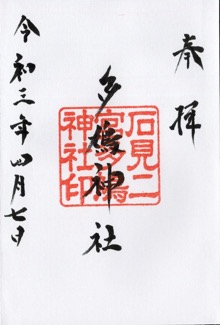 奉拝
石見二
宮多鳩
神社印
多鳩神社
令和三年四月七日